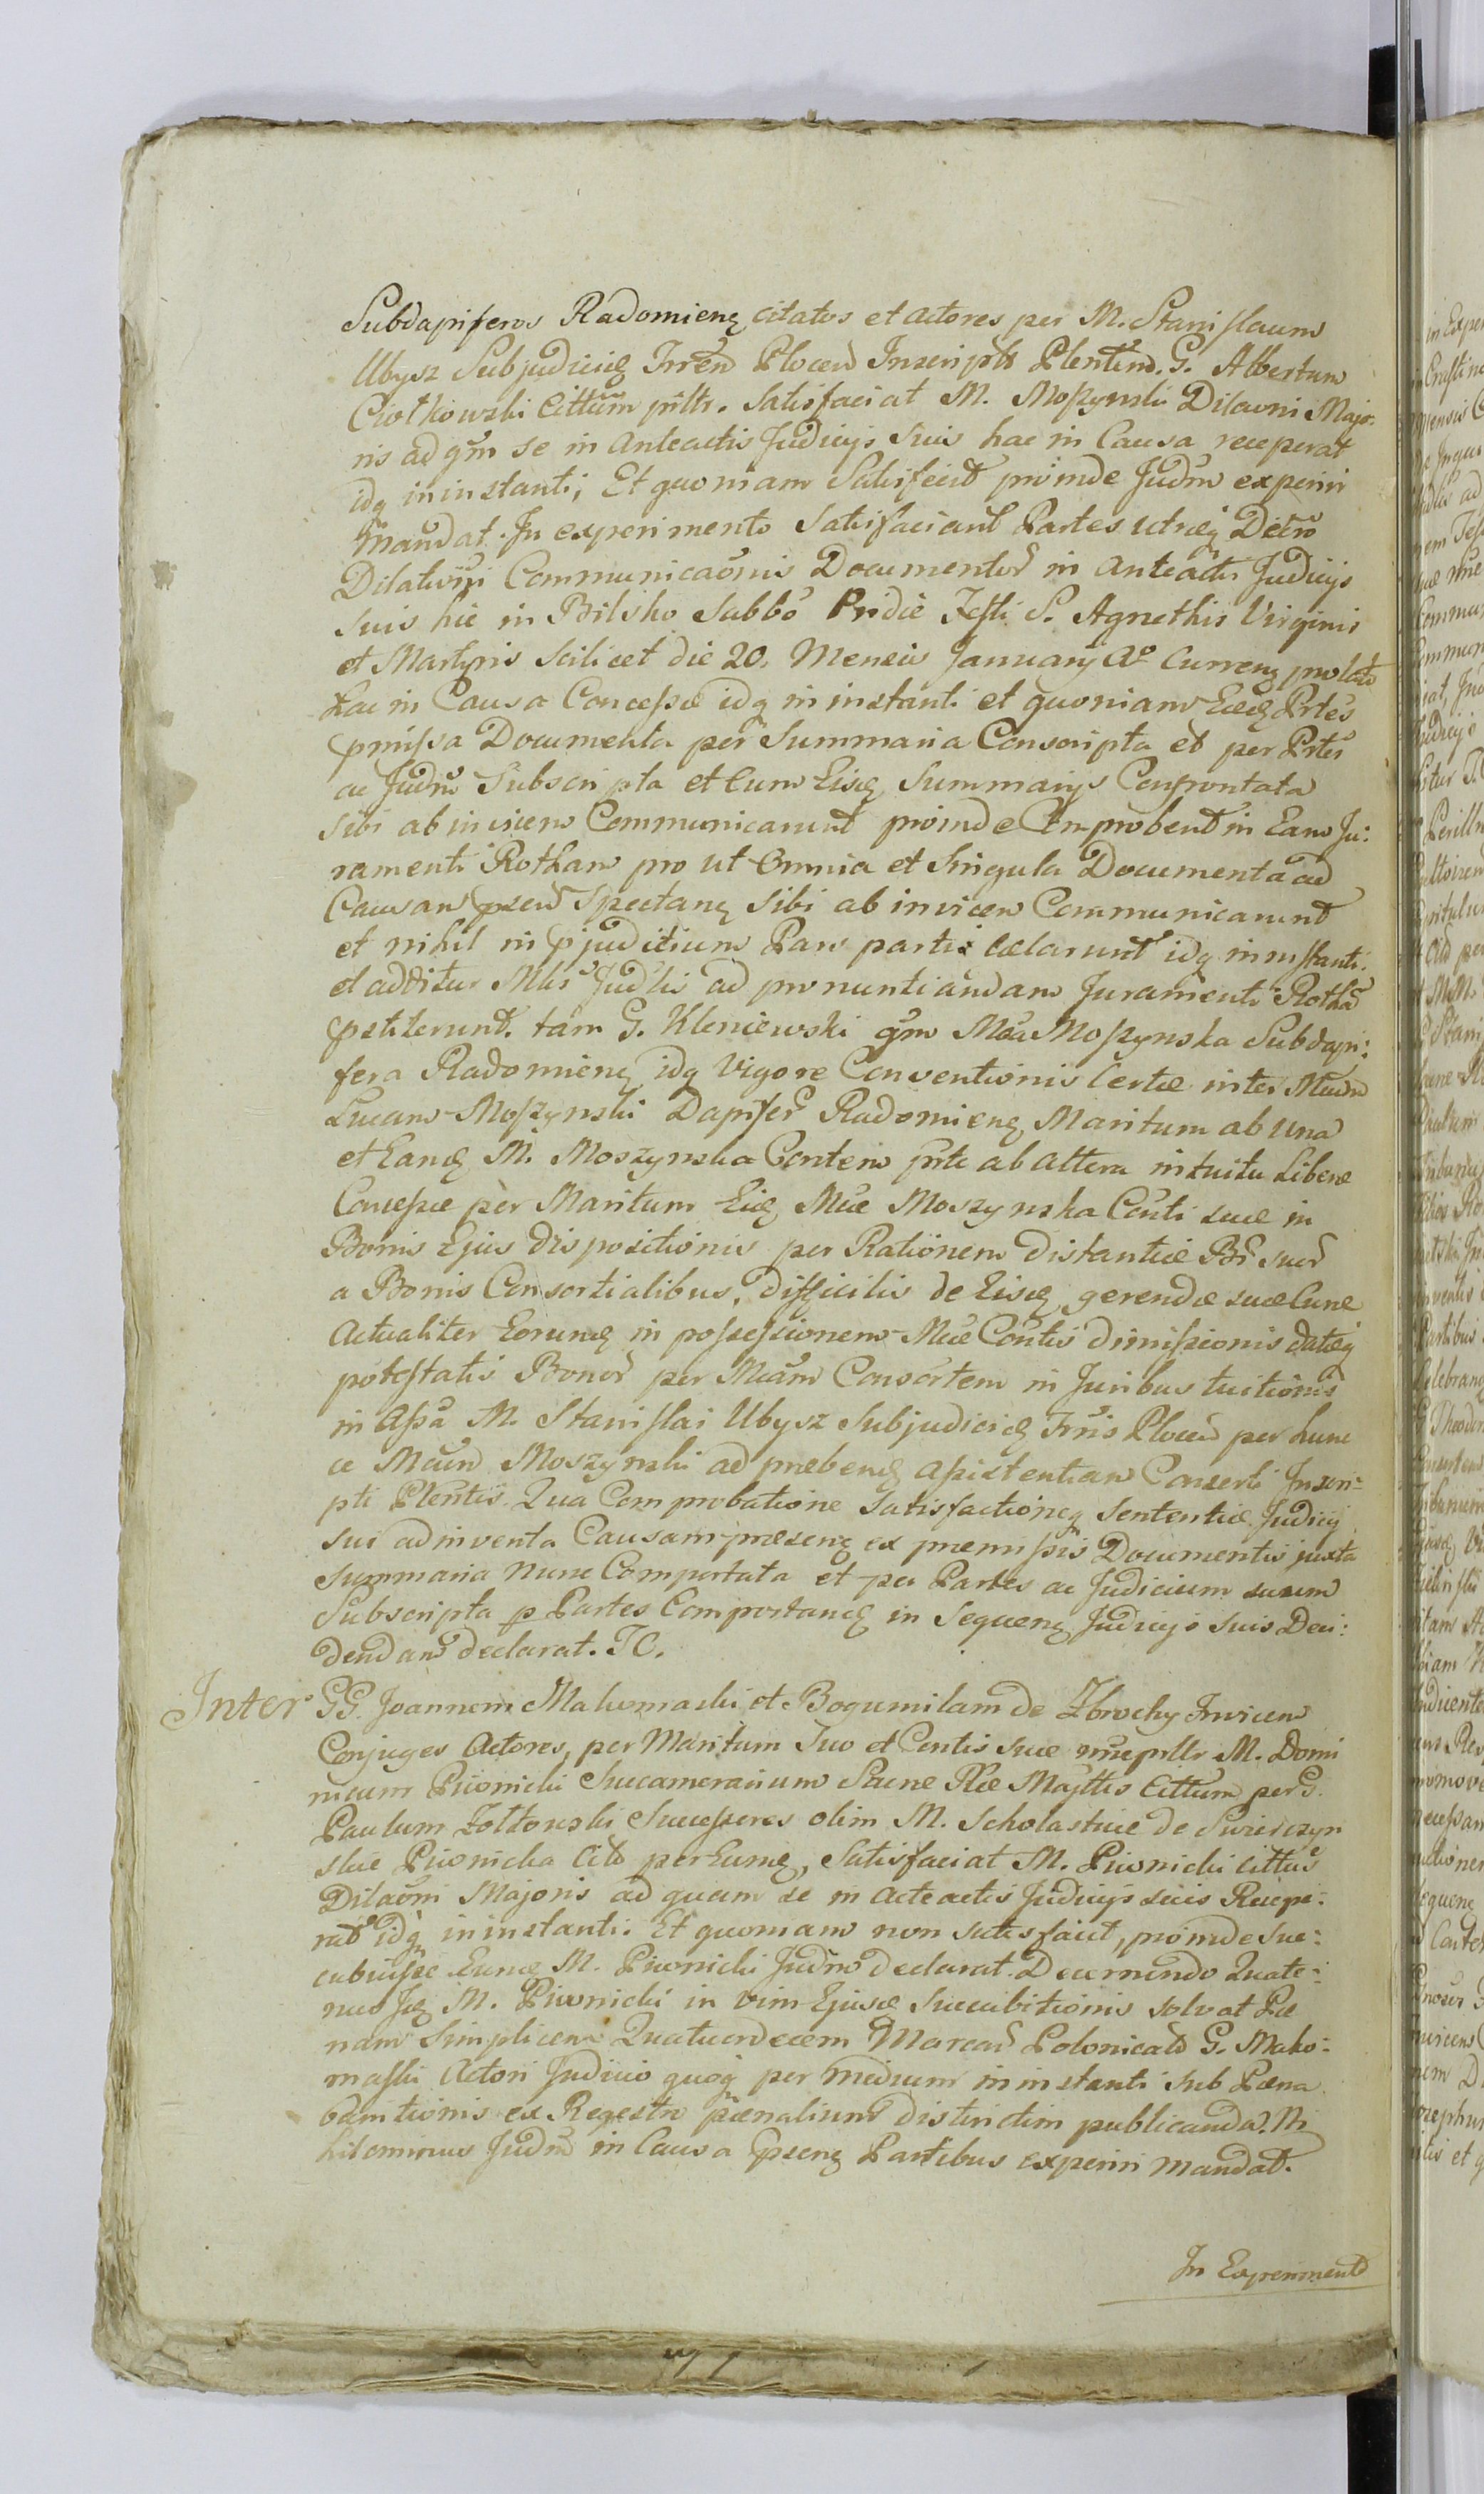 Subdapiferos Radomieng citatos et actores per M. Stanislaum
Ubysz Subjudicem Trren Plocen Inscriptt Plentem. G. Albertum
Ciołkowski Cittum pnltr. Satisfaciat M. Moszynski Dilaoni Majo:
ris ad qm se in anteactis Judicijs suis hac in Causa receperat
idq in instanti; Et quoniam Satisfecit proinde Judm experiri
Mandat. In experimento satisfaciant Partes utreq Decro
Dilationi Communicaonis Documentor in anteactis Judicijs
suis hic in Bilsko Sabbo Pridie Festi S. Agnethis Virginis
et Martyris scilicet die 20. Mensis Januarij Ao Curreng prolato
hac in Causa Concessæ idq in instanti et quoniam Eæd Prtes
pmissa Documenta per Summaria Conscripta et per Prtes
ac Judm Subscripta et Cum Eisd Summarijs Confrontata
sibi ab invicem Communicarunt proinde Comprobent in Eam Ju:
ramenti Rotham pro ut Omnia et Singula Documenta ad
Causam psen Spectang sibi ab invicem Communicarunt
et nihil in pjuditium Pars parti cælarunt idq in instanti.
et additur Mlis Judlis ad pronuntiandam Juramenti Rotha
pstiterunt. tam G. Kleniewski qm Mca Moszynska Subdapi:
fera Radomieng idq vigore Conventionis Certæ inter Mcum
Lucam Moszynski Dapifer Radomieng Maritum ab una
et Eand M. Moszynska Contem pnte ab altera intuitu Liberæ
Concessæ per Maritum Eid Mcæ Moszynska Conti suæ in
Bonis Ejus dispositionis per Rationem distantiæ Br suor
a Bonis Consortialibus, difficilis de Eisd gerendæ suæ Curæ
Actualiter Eorumd in possessionem Mcæ Contis dimissionis datæq
potestatis Bonor per Mcam Consortem in Juribus tuitionis
in Assa M. Stanislai Ubysz Subjudicis Trris Plocen per hunc
ce Mcum Moszynski ad præbeng assistentiam Consorti Inscri:
pti Plentis. Qua Comprobatione Satisfactioneq Sententiæ Judicij
sui adinventa Causam præseng ex præmissis Documentis juxta
Summaria nunc Comportata et per Partes ac Judicium suum
Subscripta p Partes Comportang in Sequeng Judicijs suis Deci:
dendam declarat. TC.
Inter GG. Joannem Makomaski et Bogumilam de Zbrochy Invicem
Conjuges Actores, per Maritum Suo et Contis suæ nne pnltr M. Domi
nicum Piwnicki Succamerarium Sacræ Ræ Majttis Cittum per G.
Paulum Zołtowski Successores olim M. Scholasticæ de Swierczyn
skie Piwnicka Citt per Eumd, Satisfaciat M. Piwnicki Cittus
Dilaoni Majoris ad quam se in Acteactis Judicijs suis Recepe:
rat idq in instanti. Et quoniam non satisfacit, proinde Suc:
cubuisse Eund M. Piwnicki Judm declarat. Decernendo Quate:
nus Id M. Piwnicki in vim Ejusd Succubitionis solvat Pæ
nam Simplicem Quatuordecem Marcar Polonicar G. Mako:
maski Actori Judicio quoq per medium in instanti sub Pæna
banitionis ex Regestro pænalium districtim publicanda. Ni
hilominus Judm in Causa pseng Partibus experiri mandat.
In Experimento